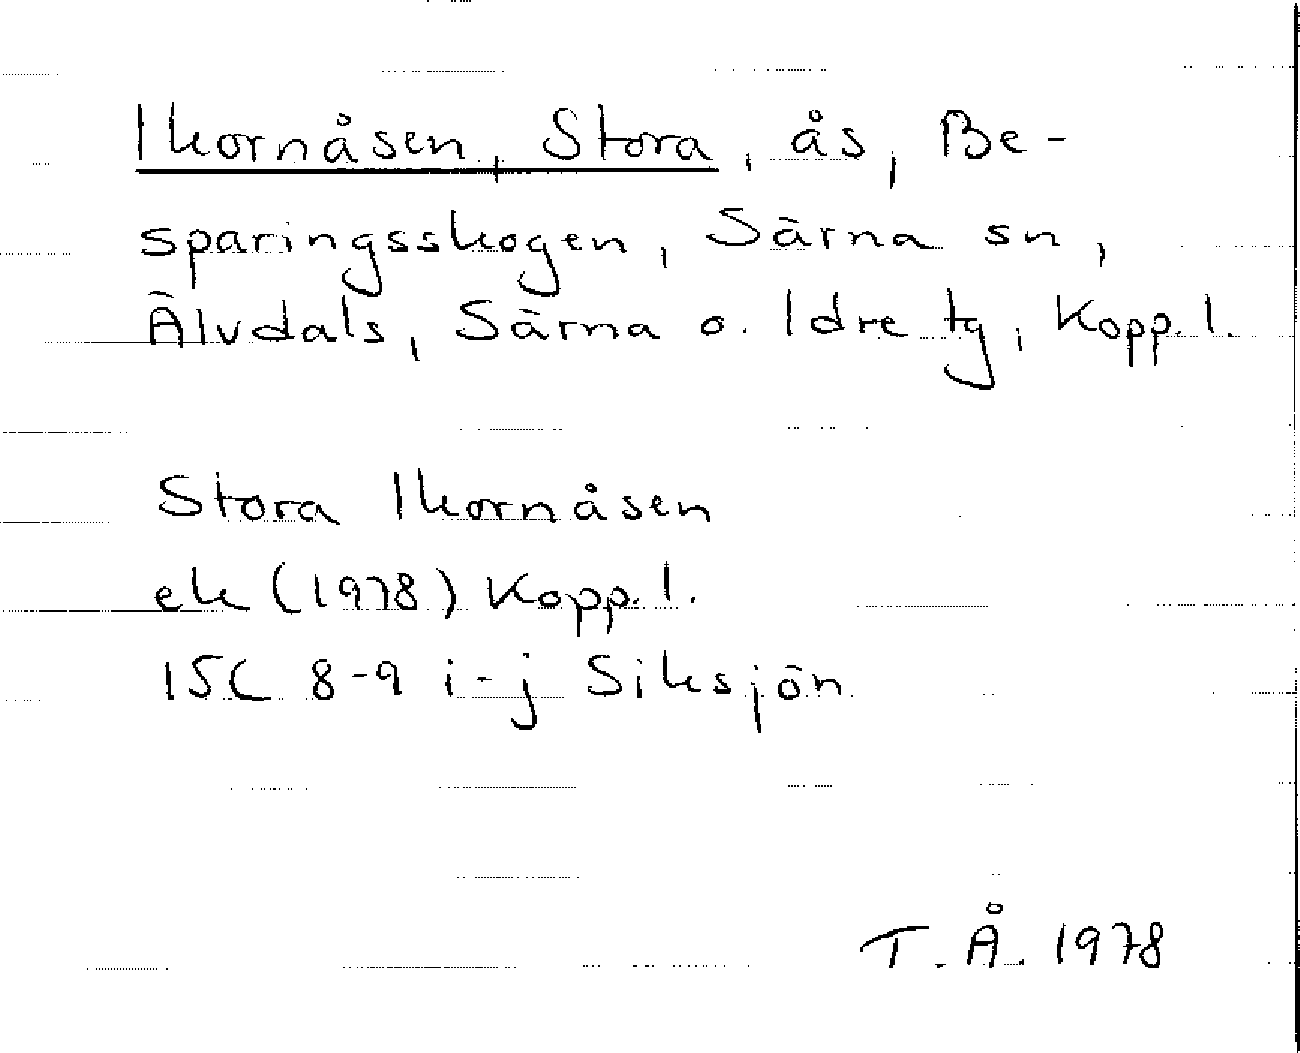 Ikornåsen, Stora, ås, Be-
sparingsskogen, Särna sn,
Älvdals, Särna o. Idre tg, Kopp. l.
Stora Ikornåsen
ek (1978) Kopp. l.
15C 8-9 i-j Siksjön
T. Å. 1978